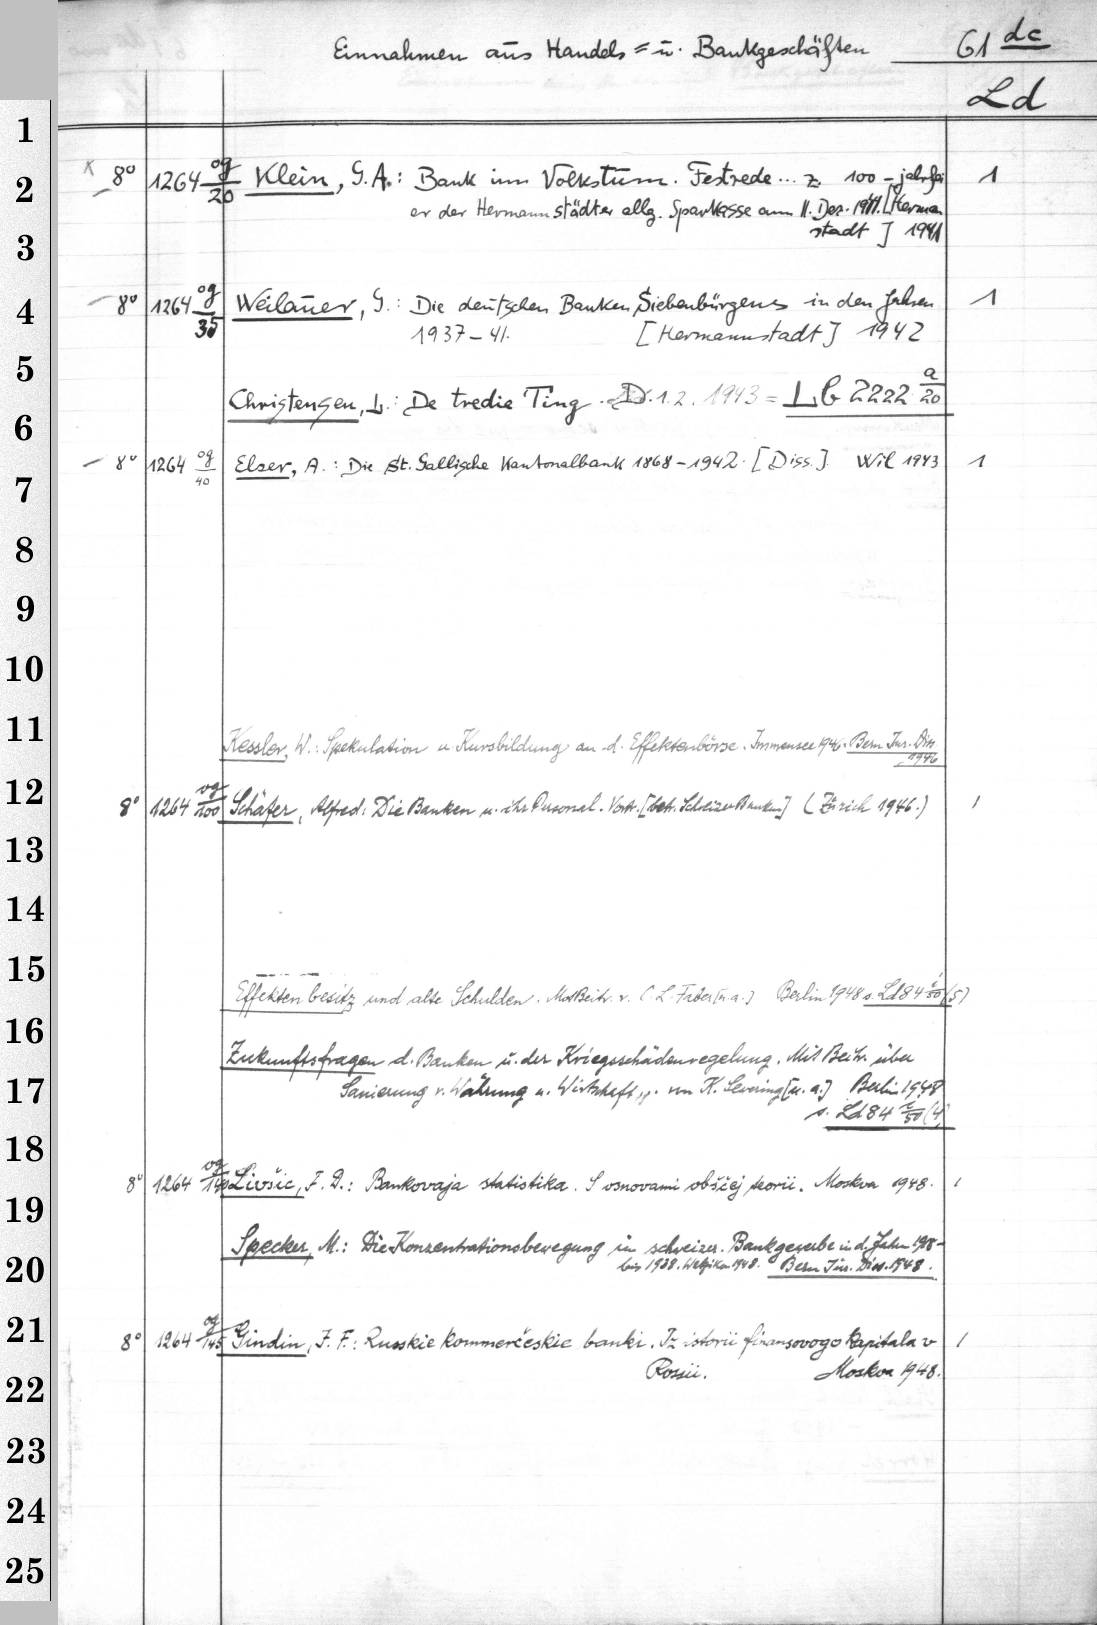 Einnahmen aus Handels= u. Bankgeschäften 61 dc
Ld
1
2
3
4
5
6
7
8
9
10
11
12
13
14
15
16
17
18
19
20
21
22
23
24
25
8° 1264 og/20 Klein, G. A.: Bank im Volkstum. Festrede ... z. 100-jahrfei 1
er der Hermannstädter allg. Sparkasse am 11. Dez. 1941. [Herman
stadt] 1941
8° 1264 og/35 Weilauer, G.: Die deutschen Banken Siebenbürgens in den Jahren 1
1937-41. [Hermannstadt] 1942
Christensen, L.: De tredie Ting. D. 1.2.1943 = Lb 2222 a/20
8° 1264 og/40 Elser, A.: Die St. Gallische Kantonalbank 1868-1942. [Diss.] Wil 1943 1
Kessler, W.: Spekulation u Kursbildung an d. Effektenbörse. Immensee 1946. Bern Jur. Diss
1946
8° 1264 og/100 Schäfer, Alfred: Die Banken u. ihr Personal. Vortr. [betr. Schweizer Banken] (Zürich 1946.) 1
Effektenbesitz und alte Schulden. Mit Beitr. v. C. L. Faber [u. a.] Berlin 1948 s. Ld 84 i/50 (5)
Zukunftsfragen d. Banken u. der Kriegsschädenregelung. Mit Beitr. über
Sanierung v. Währung u. Wirtschaft,,. von K. Severing [u. a.] Berlin 1948
s. Ld 84 i/50 (4)
8° 1264 og/140 Livšic, F. D.: Bankovaja statistika. S osnovami obščej teorii. Moskva 1948. 1
Specker, M.: Die Konzentrationsbewegung im schweizer. Bankgewerbe in d. Jahren
bis 1938. Wetzikon 1948. Bern Jur. Diss. 1948.
8° 1264 og/145 Gindin, I. F.: Russkie kommerčeskie banki. Iz istorii finansovogo kapitala v 1
Rossii. Moskva 1948.